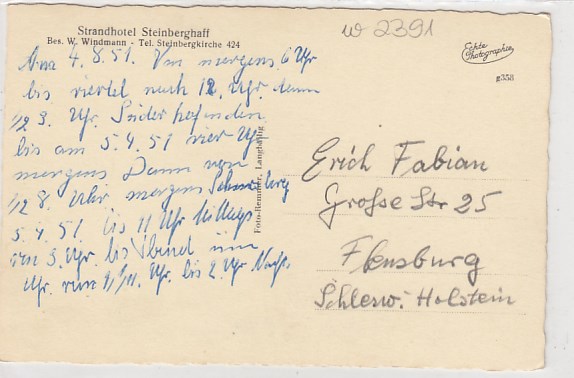 Strandhotel Steinberghaff
Bes. W. Windmann - Tel. Steinbergkirche 424
w 2391
Echte Photographie
g358
4.8.51. Von morgens 6 Uhr
bis viertel nach 12 Uhr. dann
1/2 3. Uhr.
bis am 5.4.51 vier Uhr
morgens Dann von
1/2 8. Uhr morgens
5.4.51 bis 11 Uhr Mittags
von 3. Uhr. bis Abend um
Uhr. von Uhr. bis 2. Uhr
Foto-Remmer, Langballig
Erich Fabian
Grosse Str 25
Flensburg
Schlesw. Holstein